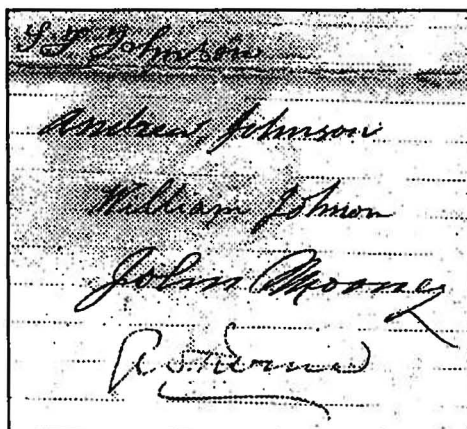 Y. Y. Johnson
Andrew Johnson
William Johnson
John Mooney